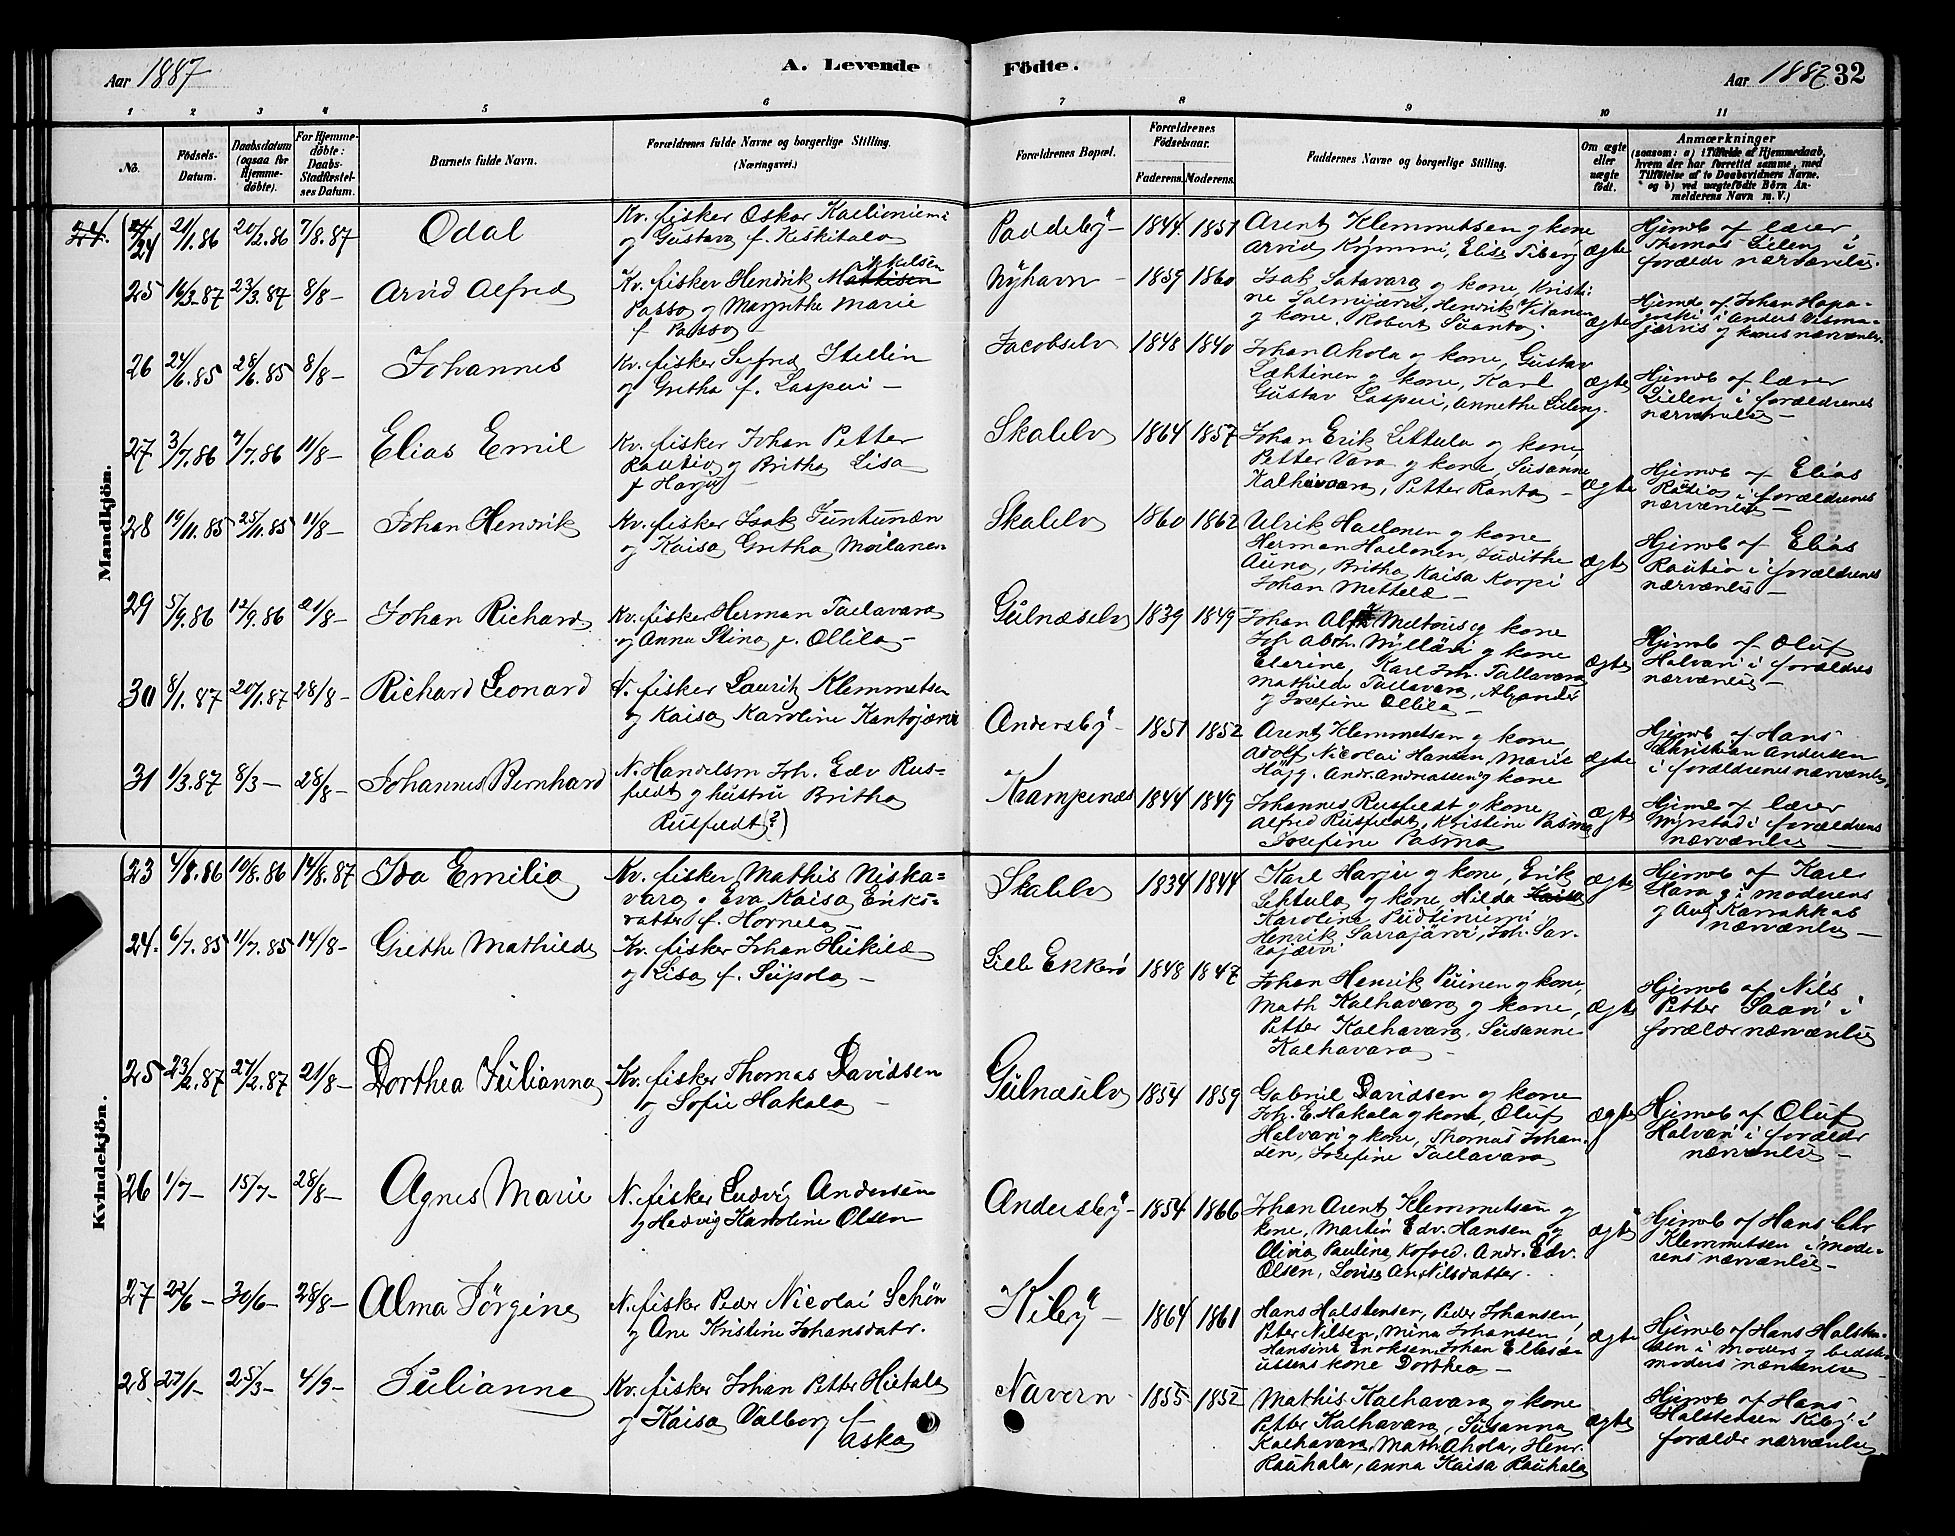 Aar 1887
A. Levende
Födte.
Aar 1887 32
1 2 3 4 5 6 7 8 9 10 11
No.
Födsels-
Datum.
Daabsdatum
(ogsaa for
Hjemme-
döbte).
For Hjemme-
döbte:
Daabs-
Stadfæstel-
ses Datum.
Barnets fulde Navn.
Forældrenes fulde Navne og borgerlige Stilling.
(Næringsvei.)
Forældrenes Bopæl.
Forældrenes
Födselsaar.
Faderens. Moderens.
Faddernes Navne og borgerlige Stilling.
Om ægte
eller
uægte
födt.
Anmærkninger
(saasom: a) i Tilfælde af Hjemmedaab,
hvem der har forrettet samme, med
Tilföielse af to Daabsvidners Navne.
og b) ved uægtefödte Börn An-
melderens Navn m. V.)
Mandkjön.
24. 21/1.86 20/2.86 7/8.87 Odal
Kv. fisker Oskar Kaelioniemi
og Gustava f. Keskitalo
Paddeby 1844. 1851
Arent Klemmetsen og kone
Arvid Krymmi, Elise Tiberg
ægte
Hjemdb af lærer
Thomas Eileng i
foreldr nærværelse.
25 16/3.87 23/3.87 8/8- Arvid Alfred
Kv. fisker Hendrik Mikkelsen
Passo og Margrethe Marie
f. Passo
Nyhavn 1859 1860
Isak Satavara og kone, Kristi-
ne Salmijærvi, Henrik Vitanen
og kone, Robert Suanto.
ægte
Hjemdb af Johan Hapa-
goski i Anders Visma-
jærvis og kones nærværelse.
26 24/6.85 28/6.85 8/8- Johannes
Kv. fisker Sefred Stellin
og Gretha f. Lasperi -
Jacobselv 1848 1840
Johan Ahola og kone, Gustav
Læhtinen og kone, Karl
Gustav Lasperi, Annethe Eileng.
ægte
Hjemdb af lærer
Eileng i forældrenes
nærværelse -
27 3/7.86 7/7.86 11/8- Elias Emil
Kv. fisker Johan Petter
Rautio og Britha Lisa
f. Harju
Skalelv 1864 1857
Johan Erik Lettula og kone,
Petter Vara og kone, Susanne
Kalhavara, Petter Ranta -
ægte
Hjemdb af Elias
Rautio i forældrenes
nærværelse -
28 19/11.85 25/11.85 11/8- Johan Henrik
Kv. fisker Isak Tuntunæn
og Kaisa Gretha Moilanen
Skalelv 1860 1862
Ulrik Haelonen og kone
Herman Haelonen, Judithe
Auno, Britha Kaisa Korpi
Johan Mettelæ -
ægte
Hjemdb af Elias
Rautio i forældrenes
nærværelse -
29 5/9.86 12/9.86 21/8- Johan Richard
Kv. fisker Herman Taelavara
og Anna Stina f. Ollila -
Gulnæselv 1839 1849
Johan Abr. Mettous og kone
Joh. Abrh. Nyllävi og kone
Elerine, Karl Joh. Tallavara
Mathilde Tallavara, Alexander
og Josefine Ollila -
ægte
Hjemdb af Oluf
Halvari i forældres
nærværelse -
30 8/1.87 20/1.87 28/8- Richard Leonard
N. fisker Lauritz Klemmetsen
og Kaisa Karoline Kantojærvi
Andersby 1851 1852
Arent Klemmetsen og kone
Adolf Nicolai Hansen, Marie
Hägg. Andr. Andreassen og kone
ægte
Hjemdb af Hans
Christian Andersen
i forældrenes nærværelse.
31 1/3.87 8/3- 28/8- Johannes Bernhard
N. Handelsm Joh. Edv Rus-
feldt og hustru Britha
Rusfeldt (?)
Krampenæs 1844 1849
Johannes Rusfeldt og kone
Alfred Rusfeldt, Kristine Pasma
Josefine Pasma
ægte
Hjemdb af lærer
Myrstad i forældrens
nærværelse -
Kvindekjön.
23 4/8.86 10/8.86 14/8.87 Ida Emilia
Kv. fisker Mathis Niska-
vara og Eva Kaisa Eriks-
datter f. Hornela -
Skalelv 1834 1844
Karl Harju og kone, Erik
Lettula og kone, Hilda Kaisa
Karoline Pudtiniemi
Henrik Sarrajärvi, Joh. Sar-
rajærvi
ægte
Hjemdb af Karl
Harju i moderens
og Aug Karrakkas
nærværelse -
24. 6/7.85 11/7.85 14/8- Grethe Mathilde
Kv. fisker Johan Heikilæ
og Lisa f. Siipola -
Lille Ekkerö 1848 1847
Johan Henrik Peuinen og kone,
Math Kalhavara og kone,
Petter Kalhavara, Susanne
Kalhavara -
ægte
Hjemdb af Nils
Petter Saari i
forældr nærværelse
25 23/2.87 27/2.87 21/8- Dorthea Julianna
Kv. fisker Thomas Davidsen
og Sofie Hakala -
Gulnæselv 1854 1859
Gabriel Davidsen og kone
Joh. E. Hakala og kone, Oluf
Halvari og kone, Thomas Johan-
sen, Josefine Taelavara
ægte
Hjemdb af Oluf
Halvari i forældr
nærværelse -
26 1/7- 15/7- 28/8- Agnes Marie
N. fisker Ludvig Andersen
og Hedvig Karoline Olsen
Andersby 1854 1866
Johan Arent Klemmetsen og
kone, Martin Edv. Hansen og
Olivia Pauline Kofoed. Andr. Edv.
Olsen, Lovise An. Nilsdatter.
ægte
Hjemdb af Hans Chr
Klemmetsen i mode-
rens nærværelse -
27 22/6- 30/6- 28/8- Alma Jörgine
N. fisker Peder Nicolai Schön
og Ane Kristine Johansdatr.
Kiby 1864 1861
Hans Halstensen, Peder Johansen,
Peter Nilsen, Mina Johansen,
Hansine Enoksen, Johan Ellesæ-
ussens kone Dorthea -
ægte
Hjemdb af Hans Halsten-
sen i moders og bedste-
moders nærværelse -
28 27/1- 25/3- 4/9- Julianne
Kv. fisker Johan Petter Hietala
og Kaisa Valborg f.
Aska
Navern 1855 1852
Mathis Kalhavara og kone
Petter Kalhavara, Susanna
Kalhavara, Math. Ahola, Henr.
Rauhala, Anna Kaisa Rauhala
ægte
Hjemdb af Hans
Halstensen Kiby i
forældr nærværelse